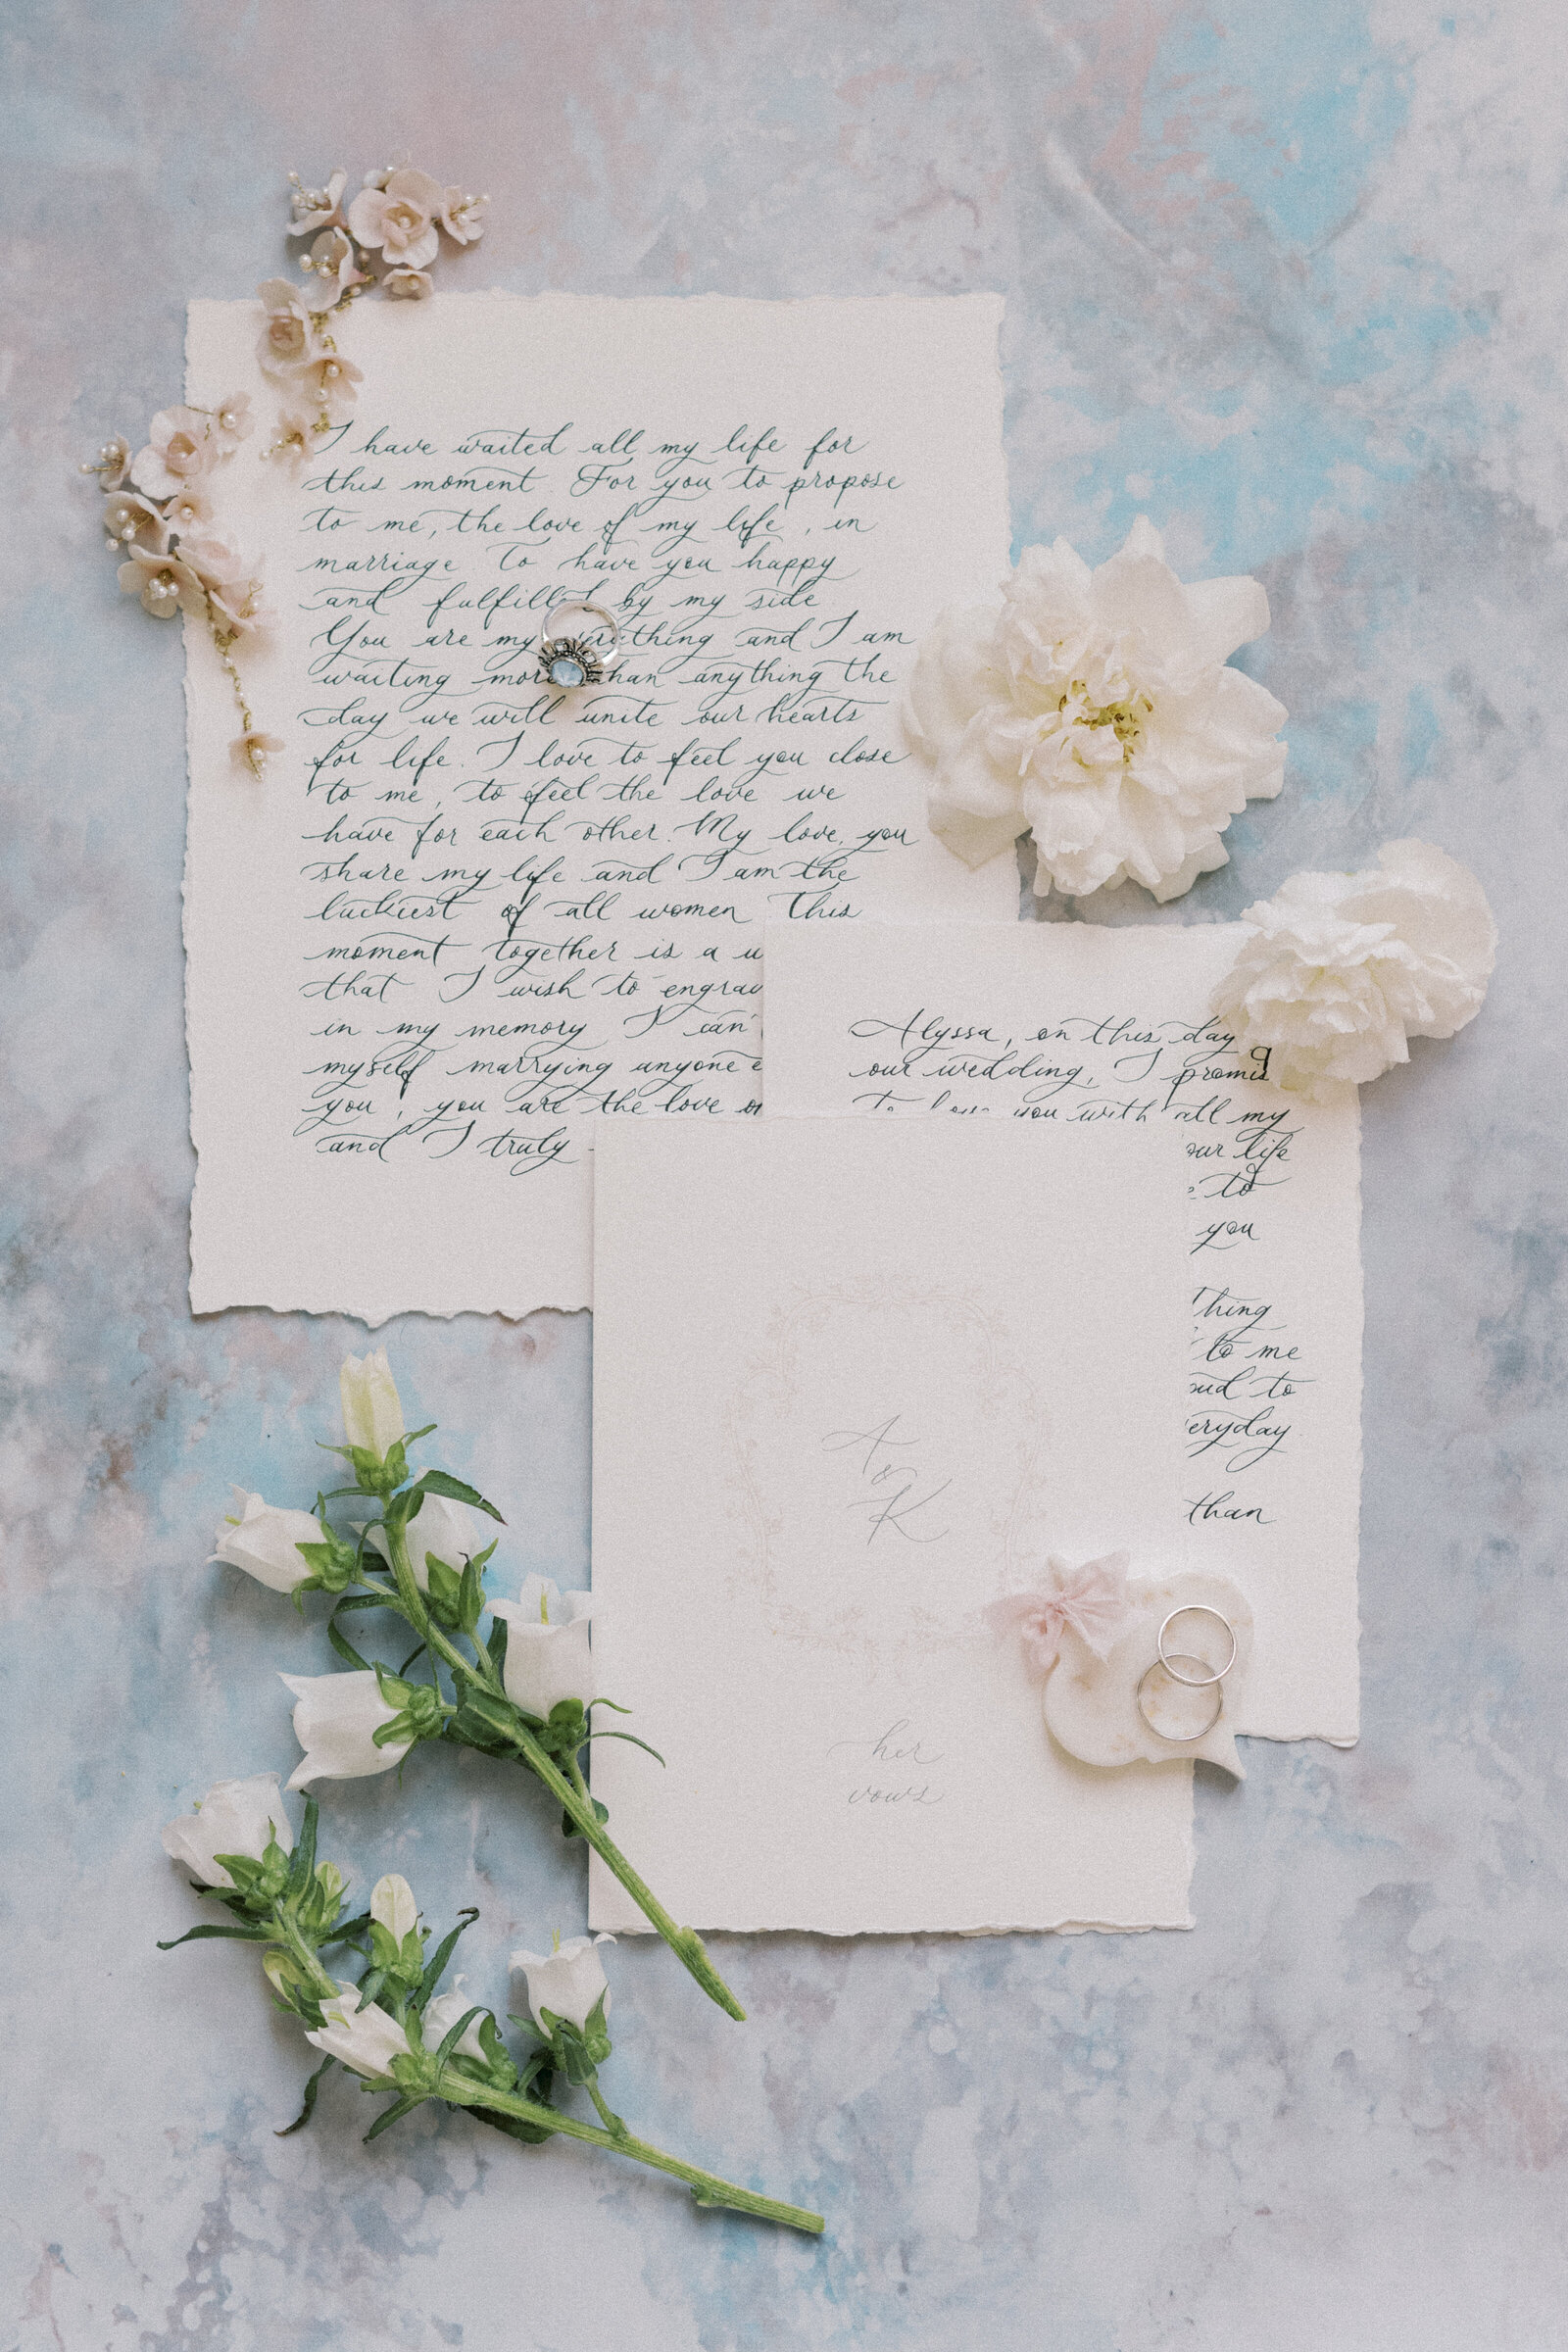 I have waited all my life for
this moment. For you to propose
to me, the love of my life, in
marriage. To have you happy
and fulfilled by my side
You are my everything and I am
waiting more than anything the
day we will unite our hearts
for life. I love to feel you close
to me, to feel the love we
have for each other. My love, you
share my life and I am the
luckiest of all women This
moment together is a
that I wish to engrav
in my memory I can'
myself marrying anyone e
you, you are the love o
and I truly
Alyssa, on this day
our wedding, I promis
To love you with all my
our life
to
you
thing
to me
to
eryday
than
A
&
K
her
vows